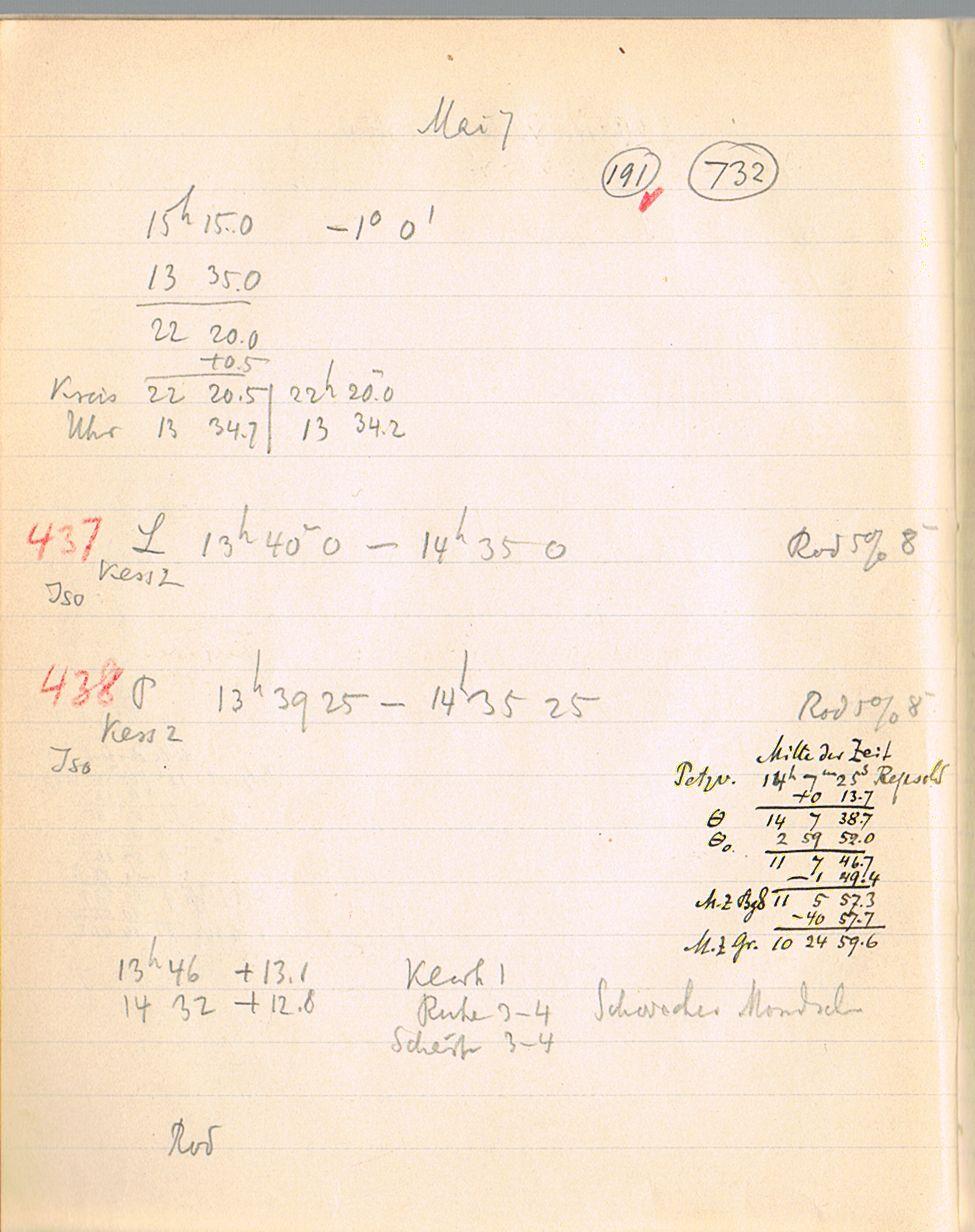 Mai 7
191 732
15h 15.0 -1° 0'
13 35.0
22 20.0
+0.5
Kreis 22 20.5 | 22h 20.0
Uhr 13 34.7 | 13 34.2
437 L 13h 40 0 — 14h 35 0 Rod 5% 8
Kess 2
Iso
438 P 13h 39 25 — 14h 35 25 Rod 5% 8
Kess 2
Iso
Mitte der Zeit
Petzv. 14h 7m 25s Repsold
+0 13.7
θ 14 7 38.7
θo. 2 59 52.0
11 7 46.7
-1 49.4
M.Z Bgd 11 5 57.3
-40 57.7
M.Z Gr. 10 24 59.6
13h 46 +13.1 Klarh 1
14 32 +12.8 Ruhe 3-4 Schwacher Mondsch
Schärfe 3-4
Rod